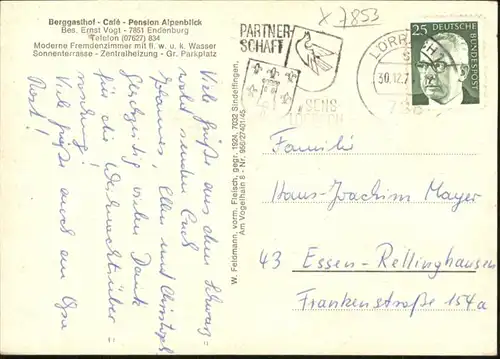 Berggasthof - Café - Pension Alpenblick
Bes. Ernst Vogt - 7851 Endenburg
Telefon (07627) 834
Moderne Fremdenzimmer mit fl. w. u. k. Wasser
Sonnenterrasse - Zentralheizung - Gr. Parkplatz
X 7853
PARTNER-
SCHAFT
SENS
LÖRRACH
LÖRRACH
30.12.7
25 DEUTSCHE
BUNDESPOST
Viele Grüße aus dem Schwarz=
wald senden Euch
Hannes, Ellen und Christoph
Gleichzeitig vielen Dank
für die Weihnachtsüber=
raschung!
Viele Grüße auch an Opa
Post!
W. Feldmann, vorm. Fleisch, gegr. 1924, 7032 Sindelfingen,
Am Vogelhain 8 - Nr. 956/27401/45
Familie
Hans-Joachim Mayer
43 Essen-Rellinghausen
Frankenstraße 154a